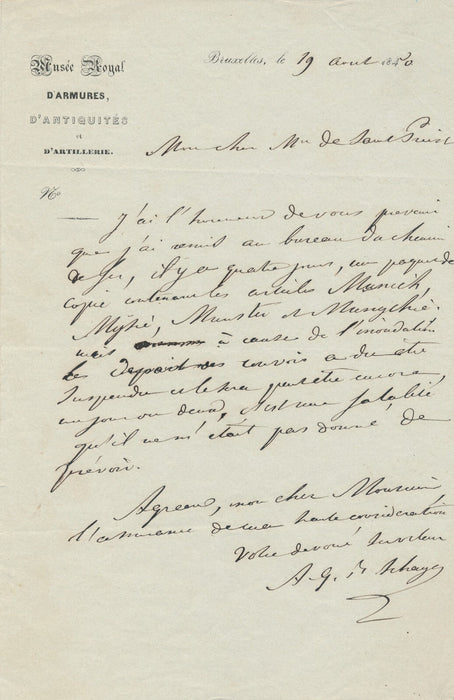 Musée Royal
D'ARMURES,
D'ANTIQUITÉS
et
D'ARTILLERIE.
Bruxelles, le 19 aout 1850
Mon cher Mr de Saint Priest
No
— J'ai l'honneur de vous prevenir
que j'ai remis au bureau du chemin
de fer, il y a quatre jours, un paquet de
copie contenant les articles Munich,
Mysie, Munster et Munychie.
mais à cause de l'inondation
le depart des convois a du être
suspendu et le sera peutêtre encore
un jour ou deux, c'est une fatalité
qu'il ne m'était pas donné de
prévoir.
Agreez, mon cher Monsieur
l'assurance de ma haute consideration
Votre devoué Serviteur
A. G. B. Schayes